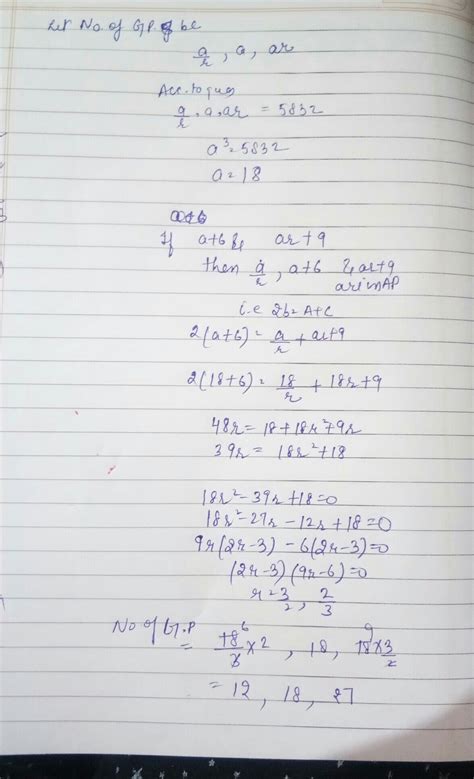 Let No. of G.P. be
a/r , a , ar
Acc. to ques
a/r . a . ar = 5832
a³ = 5832
a = 18
If a+6 & ar+9
then a/r , a+6 & ar+9
are in AP
i.e 2b = A+C
2(a+6) = a/r + ar+9
2(18+6) = 18/r + 18r+9
48r = 18+18r²+9r
39r = 18r²+18
18r²-39r+18=0
18r²-27r-12r+18=0
9r(2r-3) - 6(2r-3)=0
(2r-3)(9r-6)=0
r = 3/2 , 2/3
No of G.P
= 18/3 6 ×2 , 18 , 18 9 ×3/2
= 12 , 18 , 27